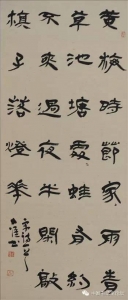 黄梅時節家雨青
草池塘處蛙有約
不來過夜半閑敲
棋子落燈花